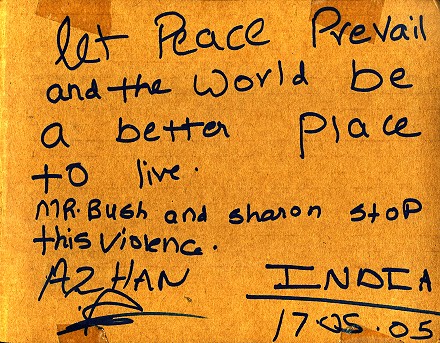 let Peace Prevail
and the world be
a better place
to live.
MR. Bush and sharon stop
this violence.
AZHAN INDIA
17.05.05